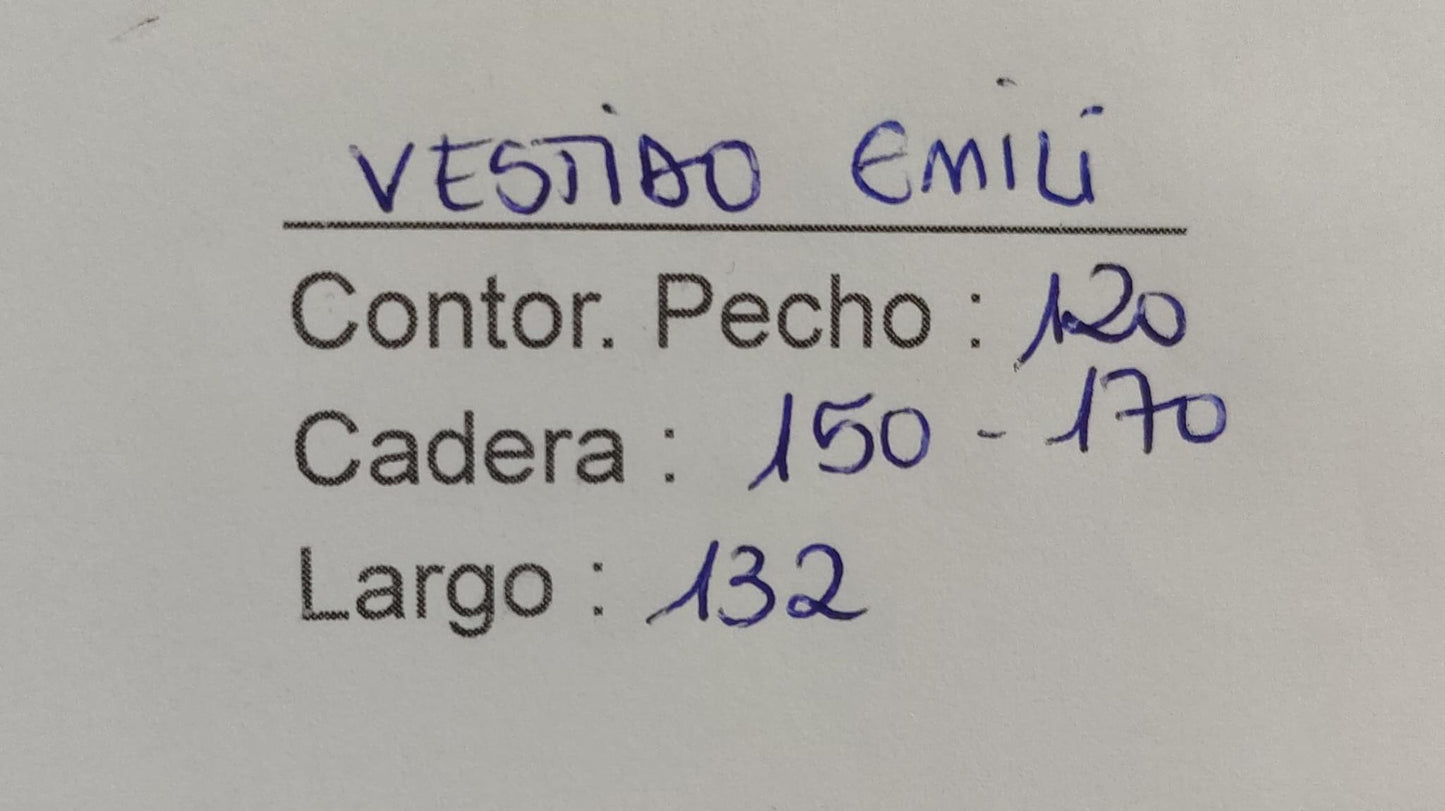 VESTIDO EMILI
Contor. Pecho : 120
Cadera : 150 - 170
Largo : 132